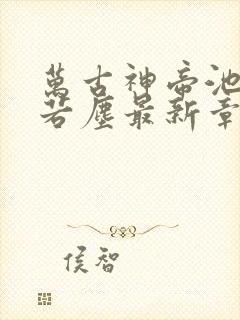 萬古神帝池
若塵最新章
侯智